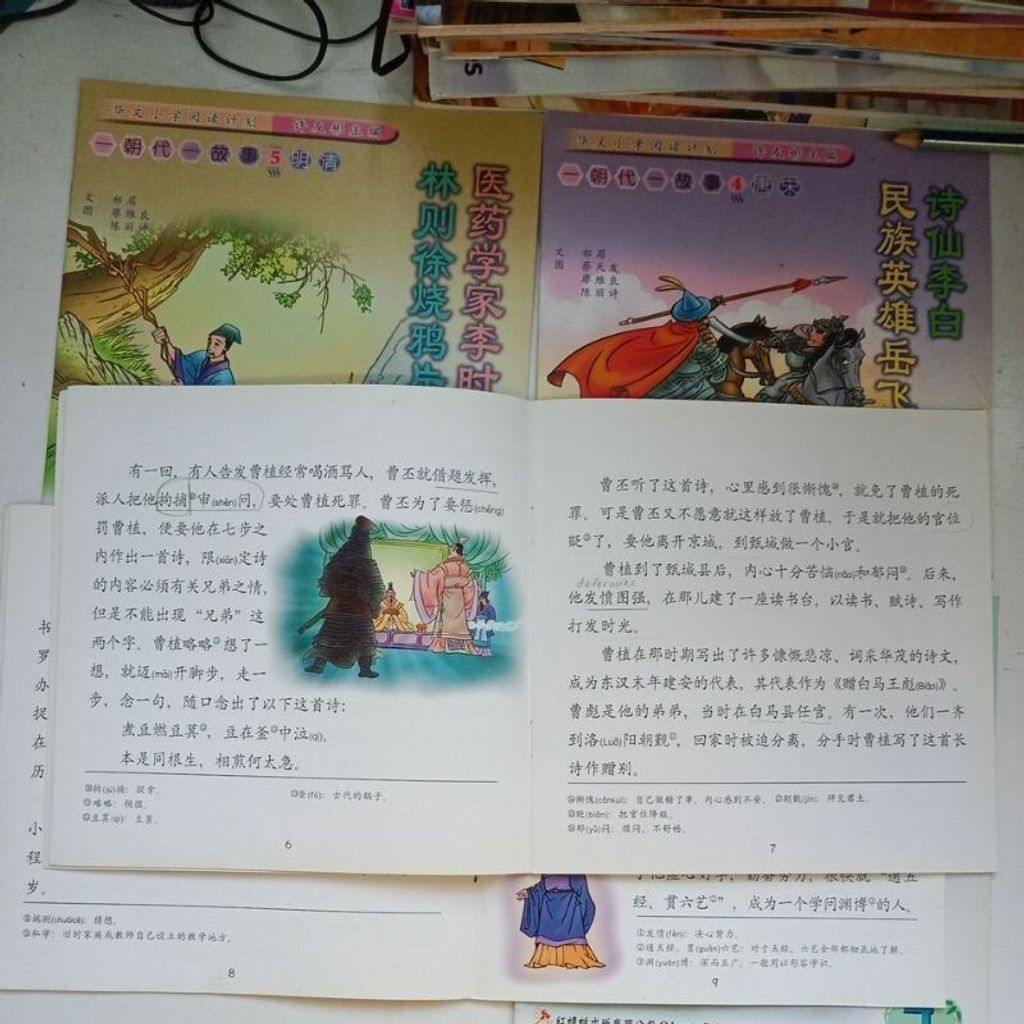 华文小学阅读计划 许友彬主编
一朝代一故事5明清
医药学家李时
林则徐烧鸦片
文 祁眉
图 廖维良
陈丽诗
华文小学阅读计划 许友彬主编
一朝代一故事4唐宋
诗仙李白
民族英雄岳飞
有一回,有人告发曹植经常喝酒骂人,曹丕就借题发挥,
派人把他拘捕⑩审(shěn)问,要处曹植死罪。曹丕为了要惩(chěng)
罚曹植,便要他在七步之
内作出一首诗,限(xiàn)定诗
的内容必须有关兄弟之情,
但是不能出现“兄弟”这
两个字。曹植略略⑪想了一
想,就迈(mài)开脚步,走一
步,念一句,随口念出了以下这首诗:
煮豆燃豆萁⑫,豆在釜⑬中泣(qì)。
本是同根生,相煎何太急。
⑩拘(jū)捕:捉拿。
⑪略略:稍微。
⑫豆萁(qí):豆茎。
⑬釜(fǔ):古代的锅子。
6
曹丕听了这首诗,心里感到很惭愧⑭,就免了曹植的死
罪。可是曹丕又不愿意就这样放了曹植。于是就把他的官位
贬⑮了,要他离开京城,到甄城做一个小官。
曹植到了甄城县后,内心十分苦恼(nǎo)和郁闷⑯。后来,
他发愤图强,在那儿建了一座读书台,以读书、赋诗、写作
打发时光。
曹植在那时期写出了许多慷慨悲凉、词采华茂的诗文,
成为东汉末年建安的代表,其代表作为《赠白马王彪(Biāo)》。
曹彪是他的弟弟,当时在白马县任官。有一次,他们一齐
到洛(Luò)阳朝觐⑰,回家时被迫分离,分手时曹植写了这首长
诗作赠别。
⑭惭愧(cánkuì):自己做错了事,内心感到不安。
⑰朝觐(jìn):拜见君主。
⑮贬(biǎn):把官位降级。
⑯郁(yù)闷:烦闷,不舒畅。
7
书
罗
办
捉
在
历
小
程
岁。
⑧揣测(chuǎicè):猜想。
⑨私学:旧时家庭或教师自己设立的教学地方。
8
经、贯六艺②”,成为一个学问渊博③的人。
①发愤(fèn):决心努力。
②通五经,贯(guàn)六艺:对于五经、六艺全部都彻底地了解。
③渊(yuān)博:深而且广,一般用以形容学识。
9